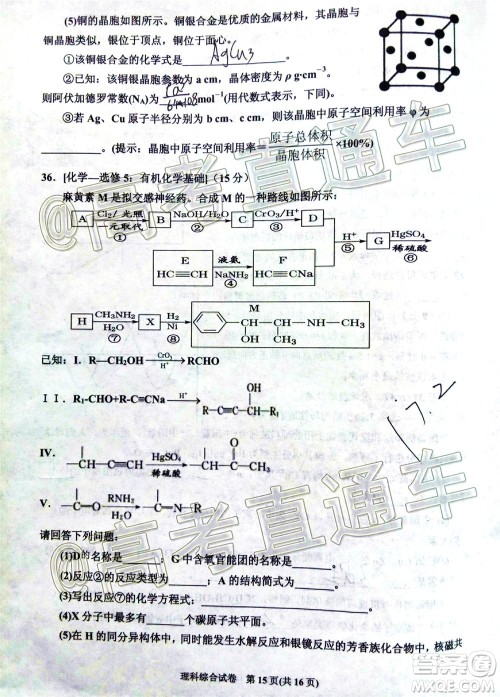 (5)铜的晶胞如图所示。铜银合金是优质的金属材料，其晶胞与
铜晶胞类似，银位于顶点，铜位于面心。
①该铜银晶胞的化学式是 AgCu3
②已知：该铜银晶胞参数为 a cm，晶体密度为 ρ g·cm⁻³。
则阿伏加德罗常数(NA)为 mol⁻¹(用代数式表示，下同)。
③若 Ag、Cu 原子半径分别为 b cm、c cm，则该晶胞中原子空间利用率 φ 为
。(提示：晶胞中原子空间利用率=原子总体积/晶胞体积×100%)
36．[化学—选修 5：有机化学基础](15 分)
麻黄素 M 是拟交感神经药。合成 M 的一种路线如图所示：
A Cl2/光照 一元取代 ① B NaOH/H2O ② C CrO3/H⁺ ③ D H⁺ ⑤ G HgSO4 稀硫酸 ⑥
E HC≡CH 液氨 NaNH2 ④ F HC≡CNa
H CH3NH2 H2O ⑦ X H2 Ni ⑧ M CH—CH—NH—CH3 OH CH3
已知：I．R—CH2OH CrO3 H⁺ RCHO
II．R1-CHO+R-C≡CNa H⁺ R—C≡C—CH—R1 OH
IV．—C≡CH HgSO4 稀硫酸
V．—C=O RNH2 H2O —C=N—R
请回答下列问题：
(1)D的名称是 ；G 中含氧官能团的名称是 。
(2)反应②的反应类型为 ；A 的结构简式为 。
(3)写出反应⑦的化学方程式： 。
(4)X 分子中最多有 个碳原子共平面。
(5)在 H 的同分异构体中，同时能发生水解反应和银镜反应的芳香族化合物中，核磁共
17.2
理科综合试卷 第 15 页(共 16 页)
@高考直通车
@高考直通车
@高考直通车
答案圈
MXQE.COM